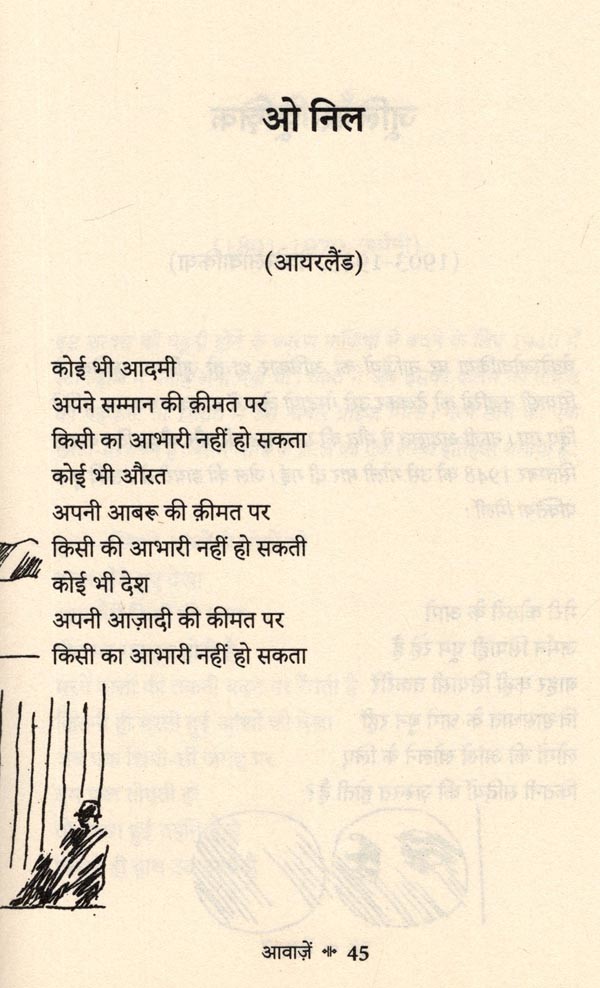 ओ निल
(आयरलैंड)
कोई भी आदमी
अपने सम्मान की क़ीमत पर
किसी का आभारी नहीं हो सकता
कोई भी औरत
अपनी आबरू की क़ीमत पर
किसी की आभारी नहीं हो सकती
कोई भी देश
अपनी आज़ादी की कीमत पर
किसी का आभारी नहीं हो सकता
आवाज़ें 45